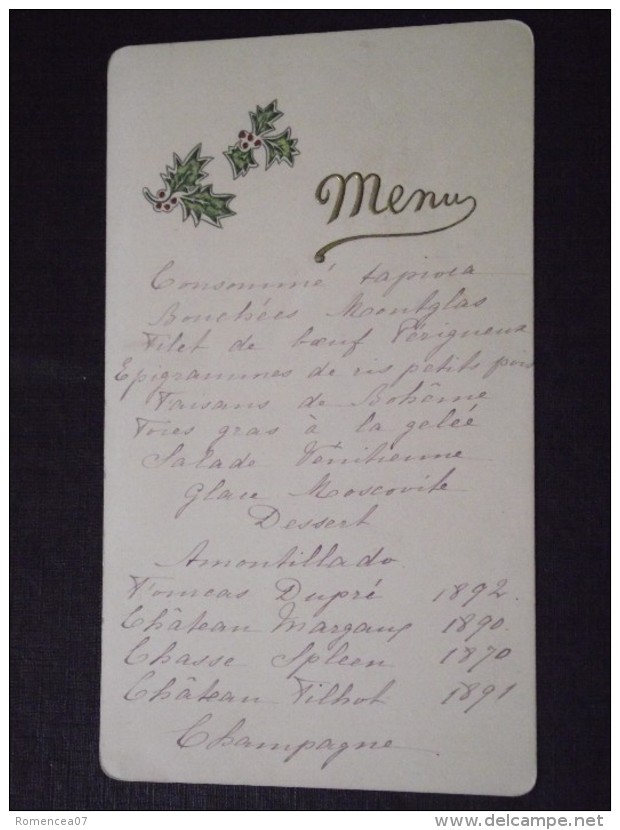 Menu
Consommé tapioca
Bouchées Montglas
Filet de bœuf Périgueux
Epigrammes de ris petits pois
Faisans de Bohême
Foies gras à la gelée
Salade Vénitienne
Glace Moscovite
Dessert
Amontillado
Fourcas Dupré 1892.
Château Margaux 1890.
Chasse Spleen 1870
Château Filhot 1891
Champagne
Romencea07
www.delcampe.net